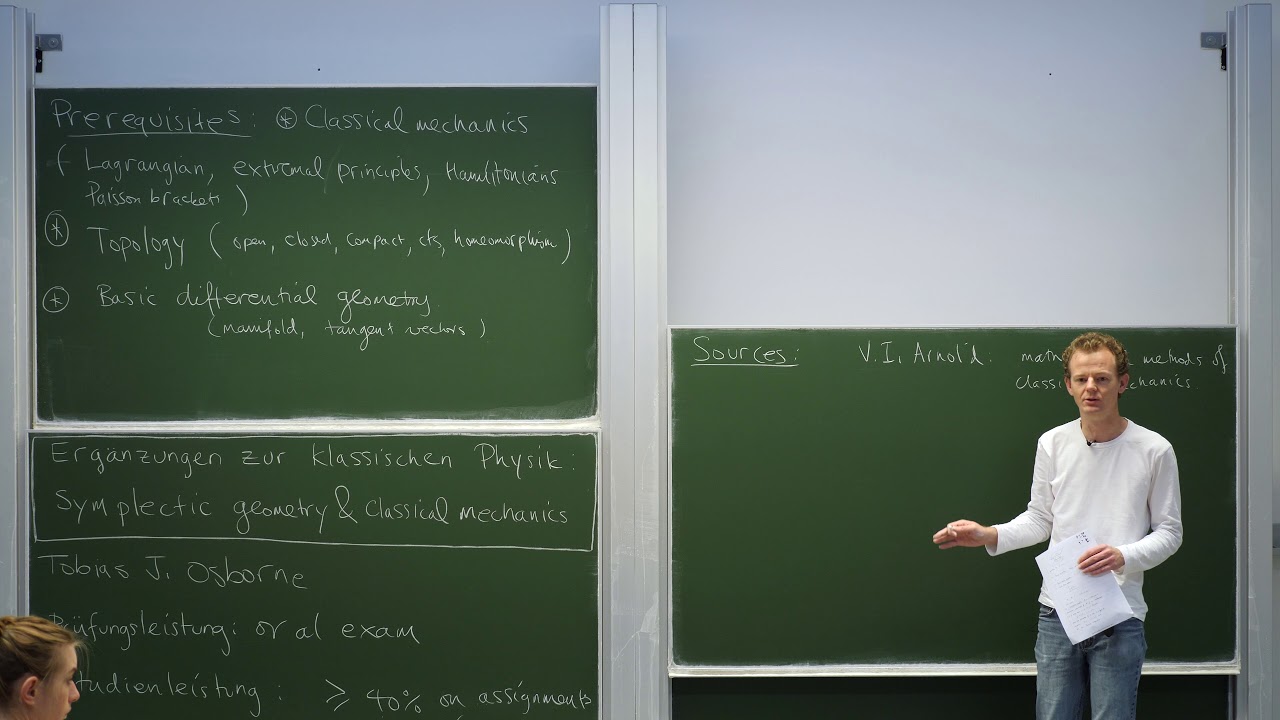 Prerequisites: ⊛ Classical mechanics
( Lagrangian, extremal principles, Hamiltonians
Poisson brackets )
⊛ Topology ( open, closed, compact, cts, homeomorphism )
⊛ Basic differential geometry
( manifold, tangent vectors )
Ergänzungen zur klassischen Physik:
Symplectic geometry & Classical mechanics
Tobias J. Osborne
Prüfungsleistung: oral exam
tudienleistung: ≥ 40% on assignments
Sources: V. I. Arnol'd: methods of